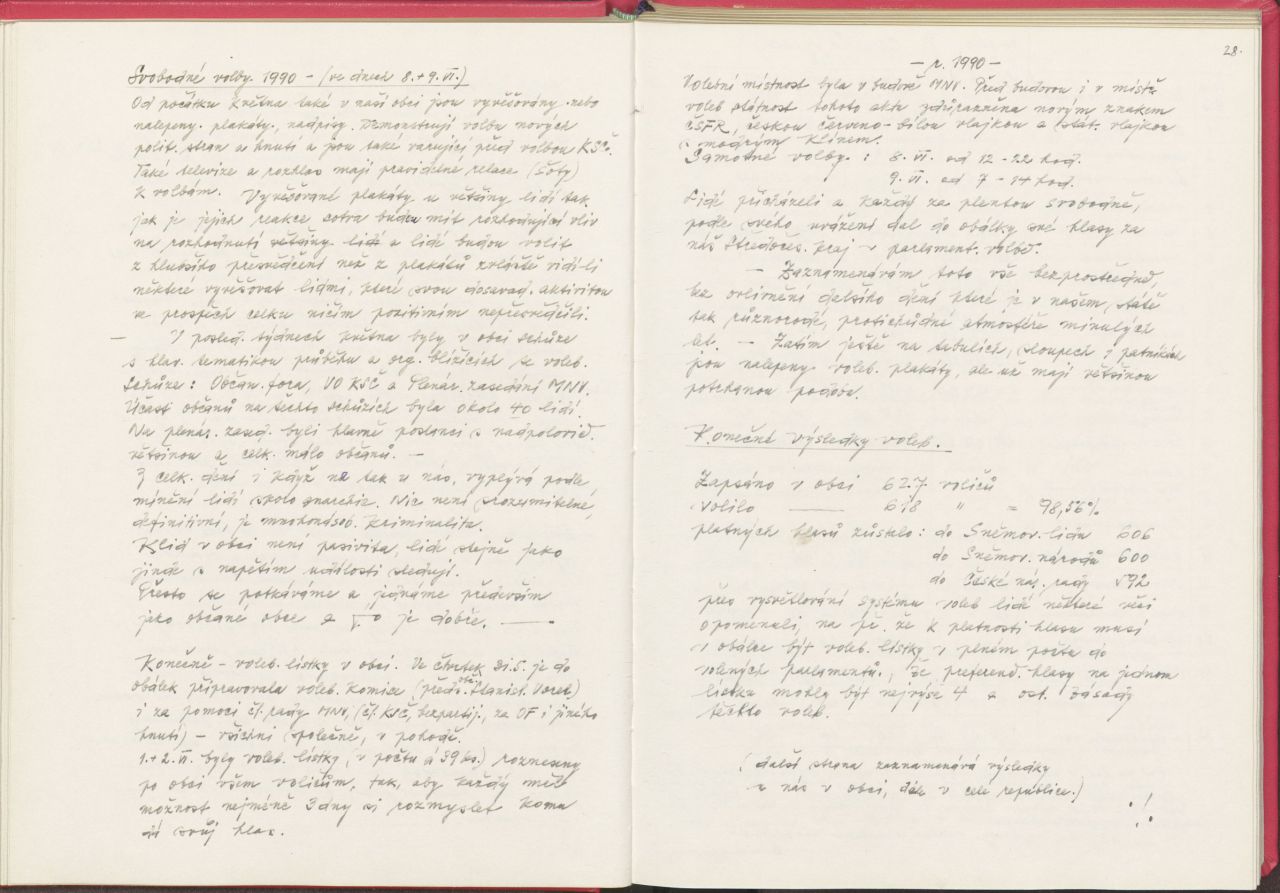 Svobodné volby 1990 – (ve dnech 8.+9.VI.)
Od počátku května také v naší obci jsou vyvěšovány nebo
nalepeny plakáty, nadpisy. Demonstrují volbu nových
polit. stran a hnutí a jsou také varující před volbou KSČ.
Také televize a rozhlas mají pravidelné relace (šoty)
k volbám. Vyvěšované plakáty u většiny lidí tak
jak je jejich reakce sotva budou mít rozhodující vliv
na rozhodnutí většiny lidí a lidé budou volit
z hlubšího přesvědčení než z plakátů zvláště vidí-li
některé vyvěšovat lidmi, které svou dosavad. aktivitou
ve prospěch celku ničím pozitivním nepřesvědčili.
– V posled. týdnech května byly v obci schůze
s hlav. tematikou průběhu a org. blížících se voleb.
Schůze: Občan. fora, VO KSČ a Plenár. zasedání MNV.
Účast občanů na těchto schůzích byla okolo 40 lidí.
Na plenár. zased. byli hlavně poslanci s nadpolovič.
většinou a celk. málo občanů. –
Z celk. dění i když ne tak u nás, vyplývá podle
mínění lidí skoro anarchie. Nic není srozumitelné,
definitivní, je mnohonásob. kriminalita.
Klid v obci není pasivita, lidé stejně jako
jinde s napětím události sledují.
Přesto se potkáváme a jednáme především
jako občané obce a to je dobře. —.
Konečně – voleb. lístky v obci. Ve čtvrtek 31.5. je do
obálek připravovala voleb. komice (předs. obč. Stanisl. Voreb)
i za pomoci čl. rady MNV, (čl. KSČ, bezpartij., za OF i jiného
hnutí) – všichni společně, v pohodě.
1.+2.VI. byly voleb. lístky (v počtu á 39 ks.) rozneseny
po obci všem voličům, tak, aby každý měl
možnost nejméně 3 dny si rozmyslet komu
dá svůj hlas.
28.
– r. 1990 –
Volební místnost byla v budově MNV. Před budovou i v místě
voleb státnost tohoto aktu zdůrazněna novým znakem
ČSFR, českou červeno-bílou vlajkou a stát. vlajkou
s modrým klínem.
Samotné volby: 8.VI. od 12-22 hod.
9.VI. od 7-14 hod.
Lidé přicházeli a každý za plentou svobodně,
podle svého uvážení dal do obálky své hlasy za
náš Středočes. kraj v parlament. volbě.
– Zaznamenávám toto vše bezprostředně,
bez ovlivnění dalšího dění které je v našem státě
tak různorodé, protichůdné atmosféře minulých
let. – Zatím ještě na tabulích, sloupech i patnících
jsou nalepeny voleb. plakáty, ale už mají většinou
potrhanou podobu.
Konečné výsledky voleb.
Zapsáno v obci 627 voličů
Volilo — 618 " = 98,56%
platných hlasů zůstalo: do Sněmov. lidu 606
do Sněmov. národů 600
do České nár. rady 592
přes vysvětlování systému voleb lidé některé věci
opomenuli, na př. že k platnosti hlasu musí
v obálce být voleb. lístky v plném počtu do
volených parlamentů, že preferenč. hlasy na jednom
lístku mohly být nejvýše 4 a ost. zásady
těchto voleb.
(další strana zaznamenává výsledky
u nás v obci, dále v cele republice.)
./.